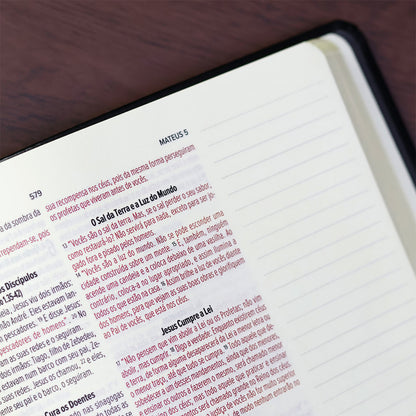 MATEUS 5
579
da sombra da
rrependam-se, pois
s Discípulos
.35-42)
leia, Jesus viu dois irmãos:
mão André. Eles estavam lan-
pescadores. 19 E disse Jesus:
pescadores de homens".
dois irmãos: Tiago, filho de Zebedeu,
num barco com seu pai, Ze-
as suas redes. Jesus os chamou, 22 e eles,
seu pai e o barco, o seguiram.
Cura os Doentes
nas sinagogas
sua recompensa nos céus, pois da mesma forma perseguiram
os profetas que viveram antes de vocês.
O Sal da Terra e a Luz do Mundo
13 "Vocês são o sal da terra. Mas, se o sal perder o seu sabor,
como restaurá-lo? Não servirá para nada, exceto para ser jo-
gado fora e pisado pelos homens.
14 "Vocês são a luz do mundo. Não se pode esconder uma
cidade construída sobre um monte. 15 E, também, ninguém
acende uma candeia e a coloca debaixo de uma vasilha. Ao
contrário, coloca-a no lugar apropriado, e assim ilumina a
todos os que estão na casa. 16 Assim brilhe a luz de vocês diante
dos homens, para que vejam as suas boas obras e glorifiquem
ao Pai de vocês, que está nos céus.
Jesus Cumpre a Lei
17 "Não pensem que vim abolir a Lei ou os Profetas; não vim
abolir, mas cumprir. 18 Digo a verdade: Enquanto existirem céus
e terra, de forma alguma desaparecerá da Lei a menor letra ou
o menor traço, até que tudo se cumpra. 19 Todo aquele que
desobedecer a um desses mandamentos, ainda que dos menores,
e ensinar os outros a fazerem o mesmo, será chamado menor
no Reino dos céus; mas todo aquele que praticar e ensinar